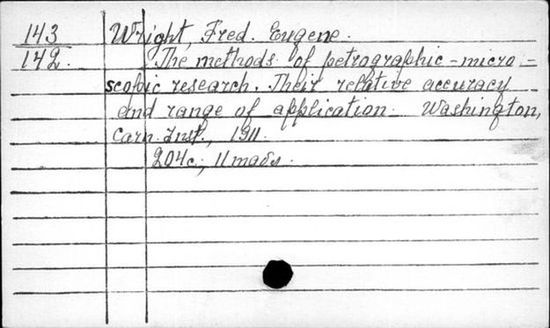 143 Wright, Fred. Eugene.
142. The methods of petrographic-micro-
scopic research. Their relative accuracy
and range of application. Washington,
Carn. Inst., 1911.
204c., 11 табл.